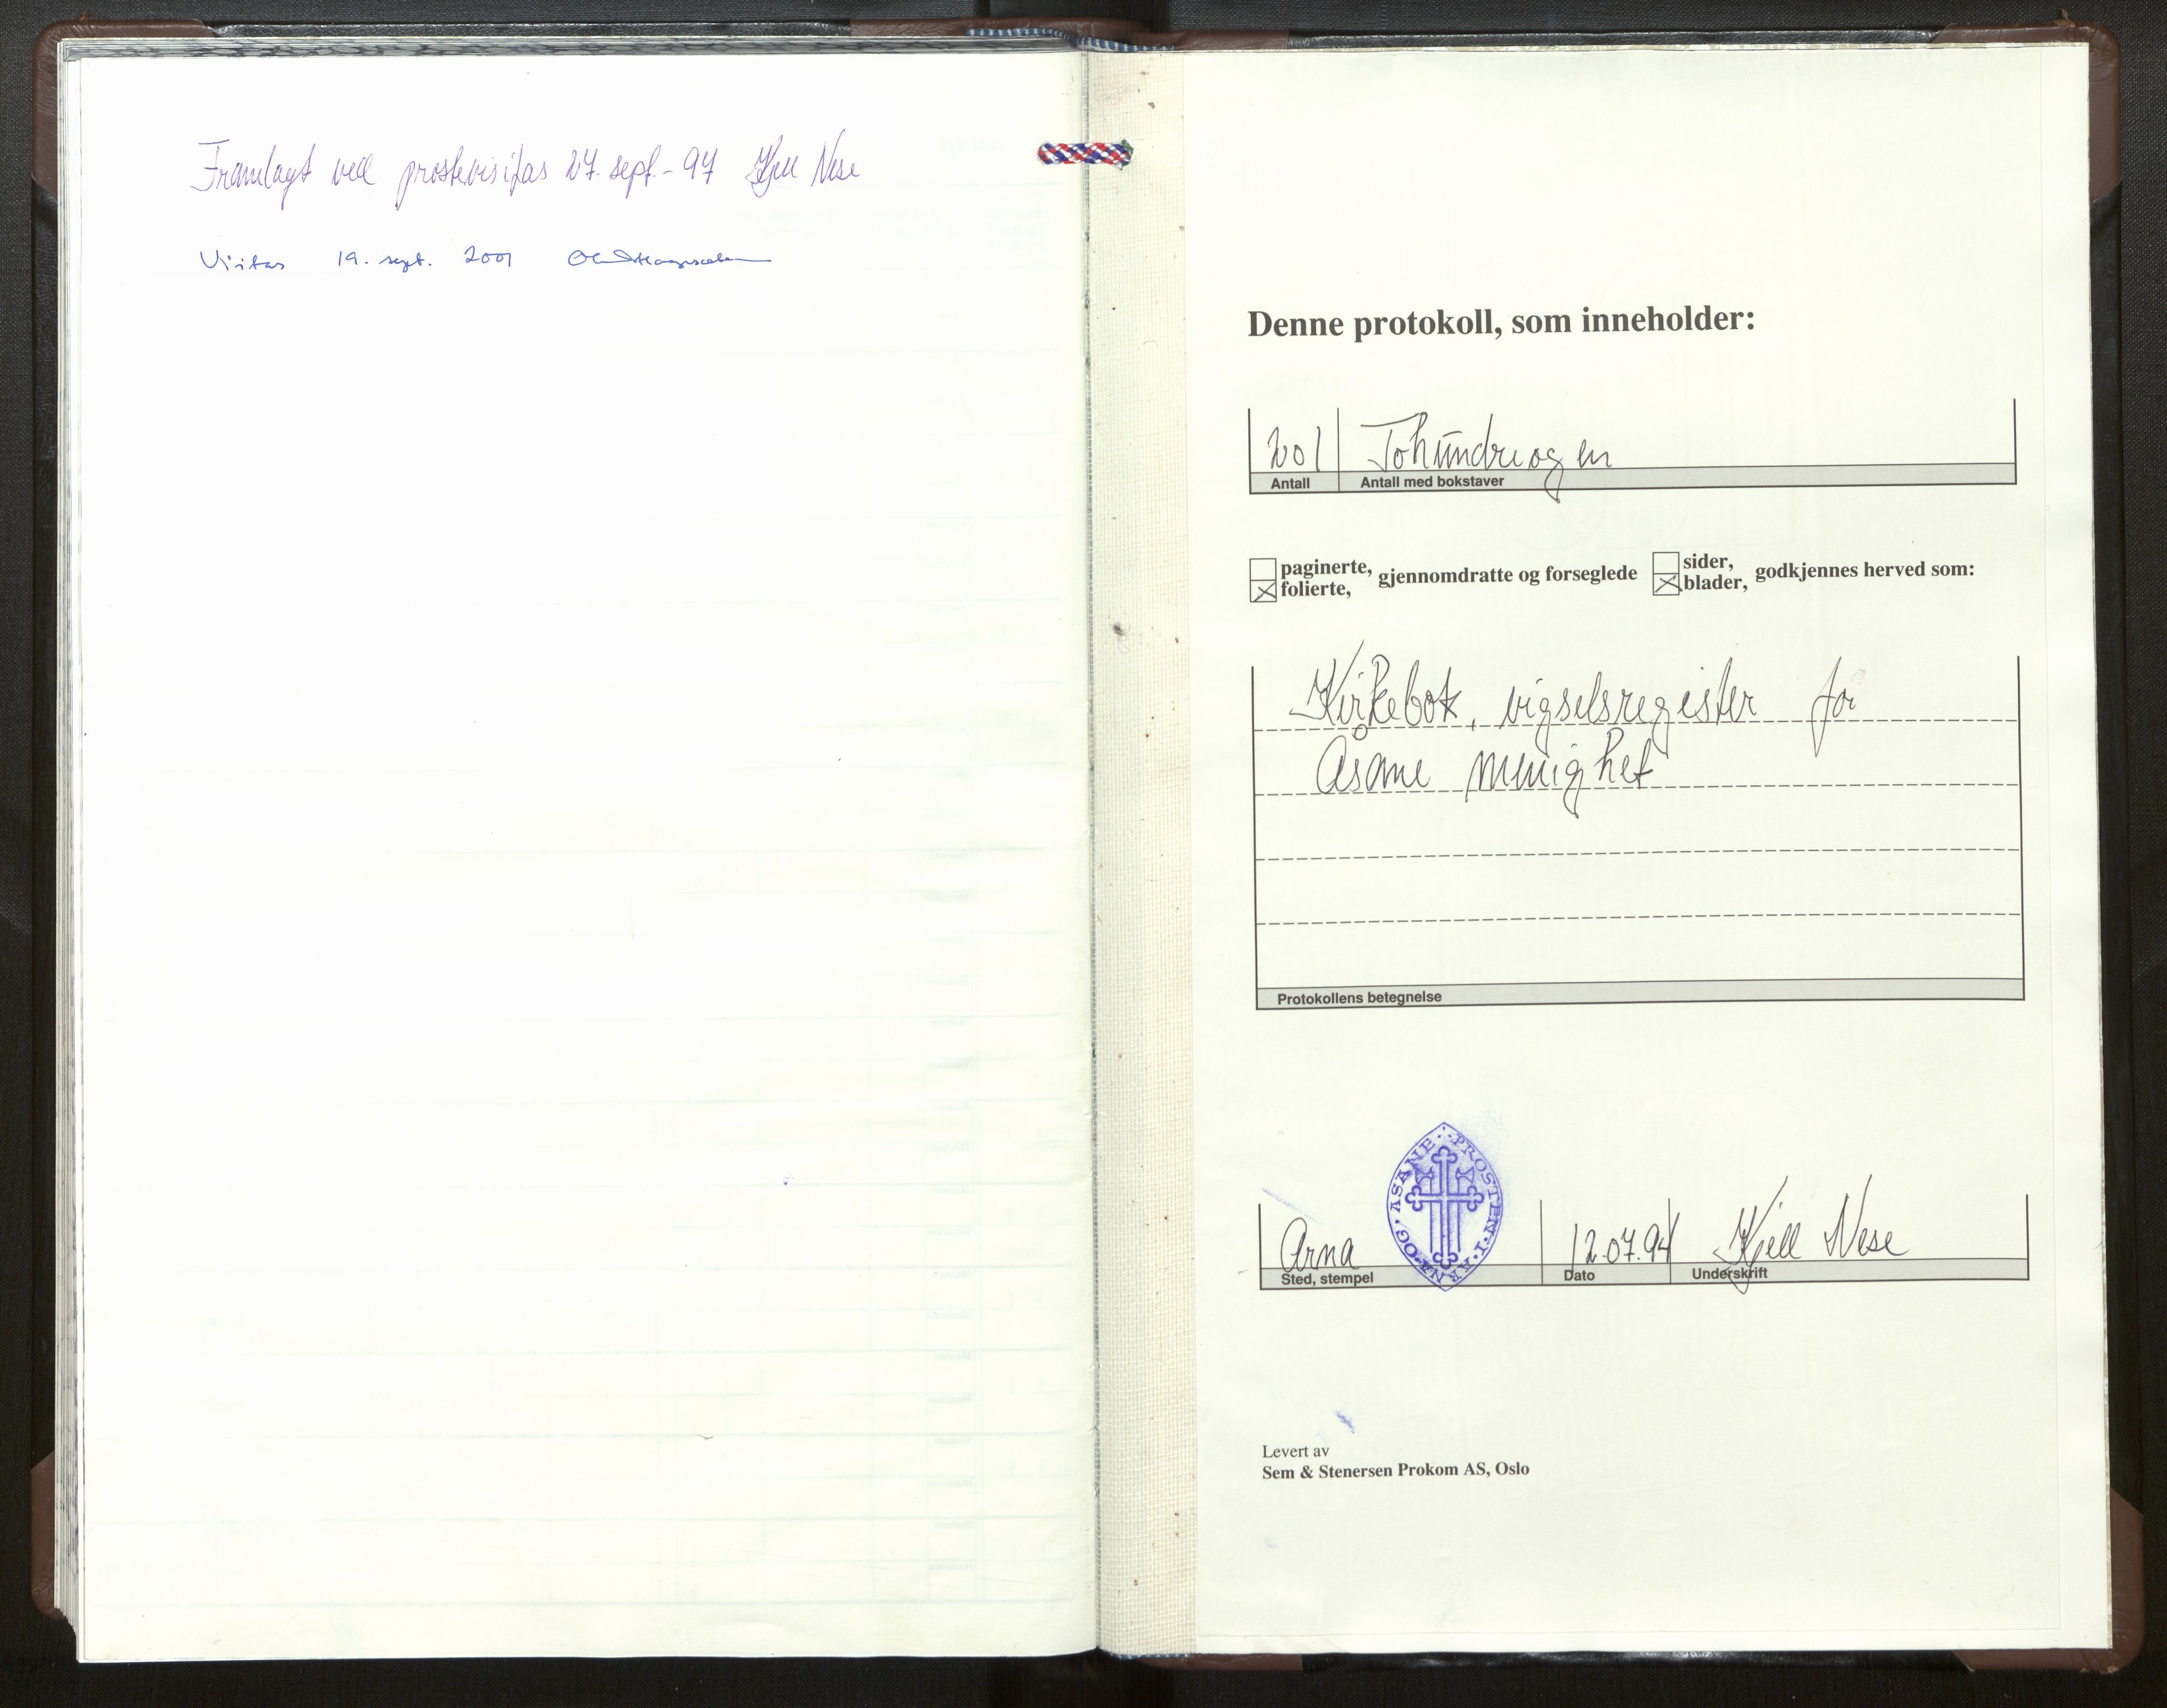 Framlagt ved prostevisitas 27. sept. - 97 Kjell Nese
Visitas 19. sept. 2001
Denne protokoll, som inneholder:
201 Tohundre og en
Antall Antall med bokstaver
paginerte, folierte, gjennomdratte og forseglede sider, blader, godkjennes herved som:
Kirkebok, vigselsregister for
Åsane menighet
Protokollens betegnelse
PROSTEN · I · ARNA · OG · ÅSANE
Arna 12.07.94 Kjell Nese
Sted, stempel Dato Underskrift
Levert av
Sem & Stenersen Prokom AS, Oslo